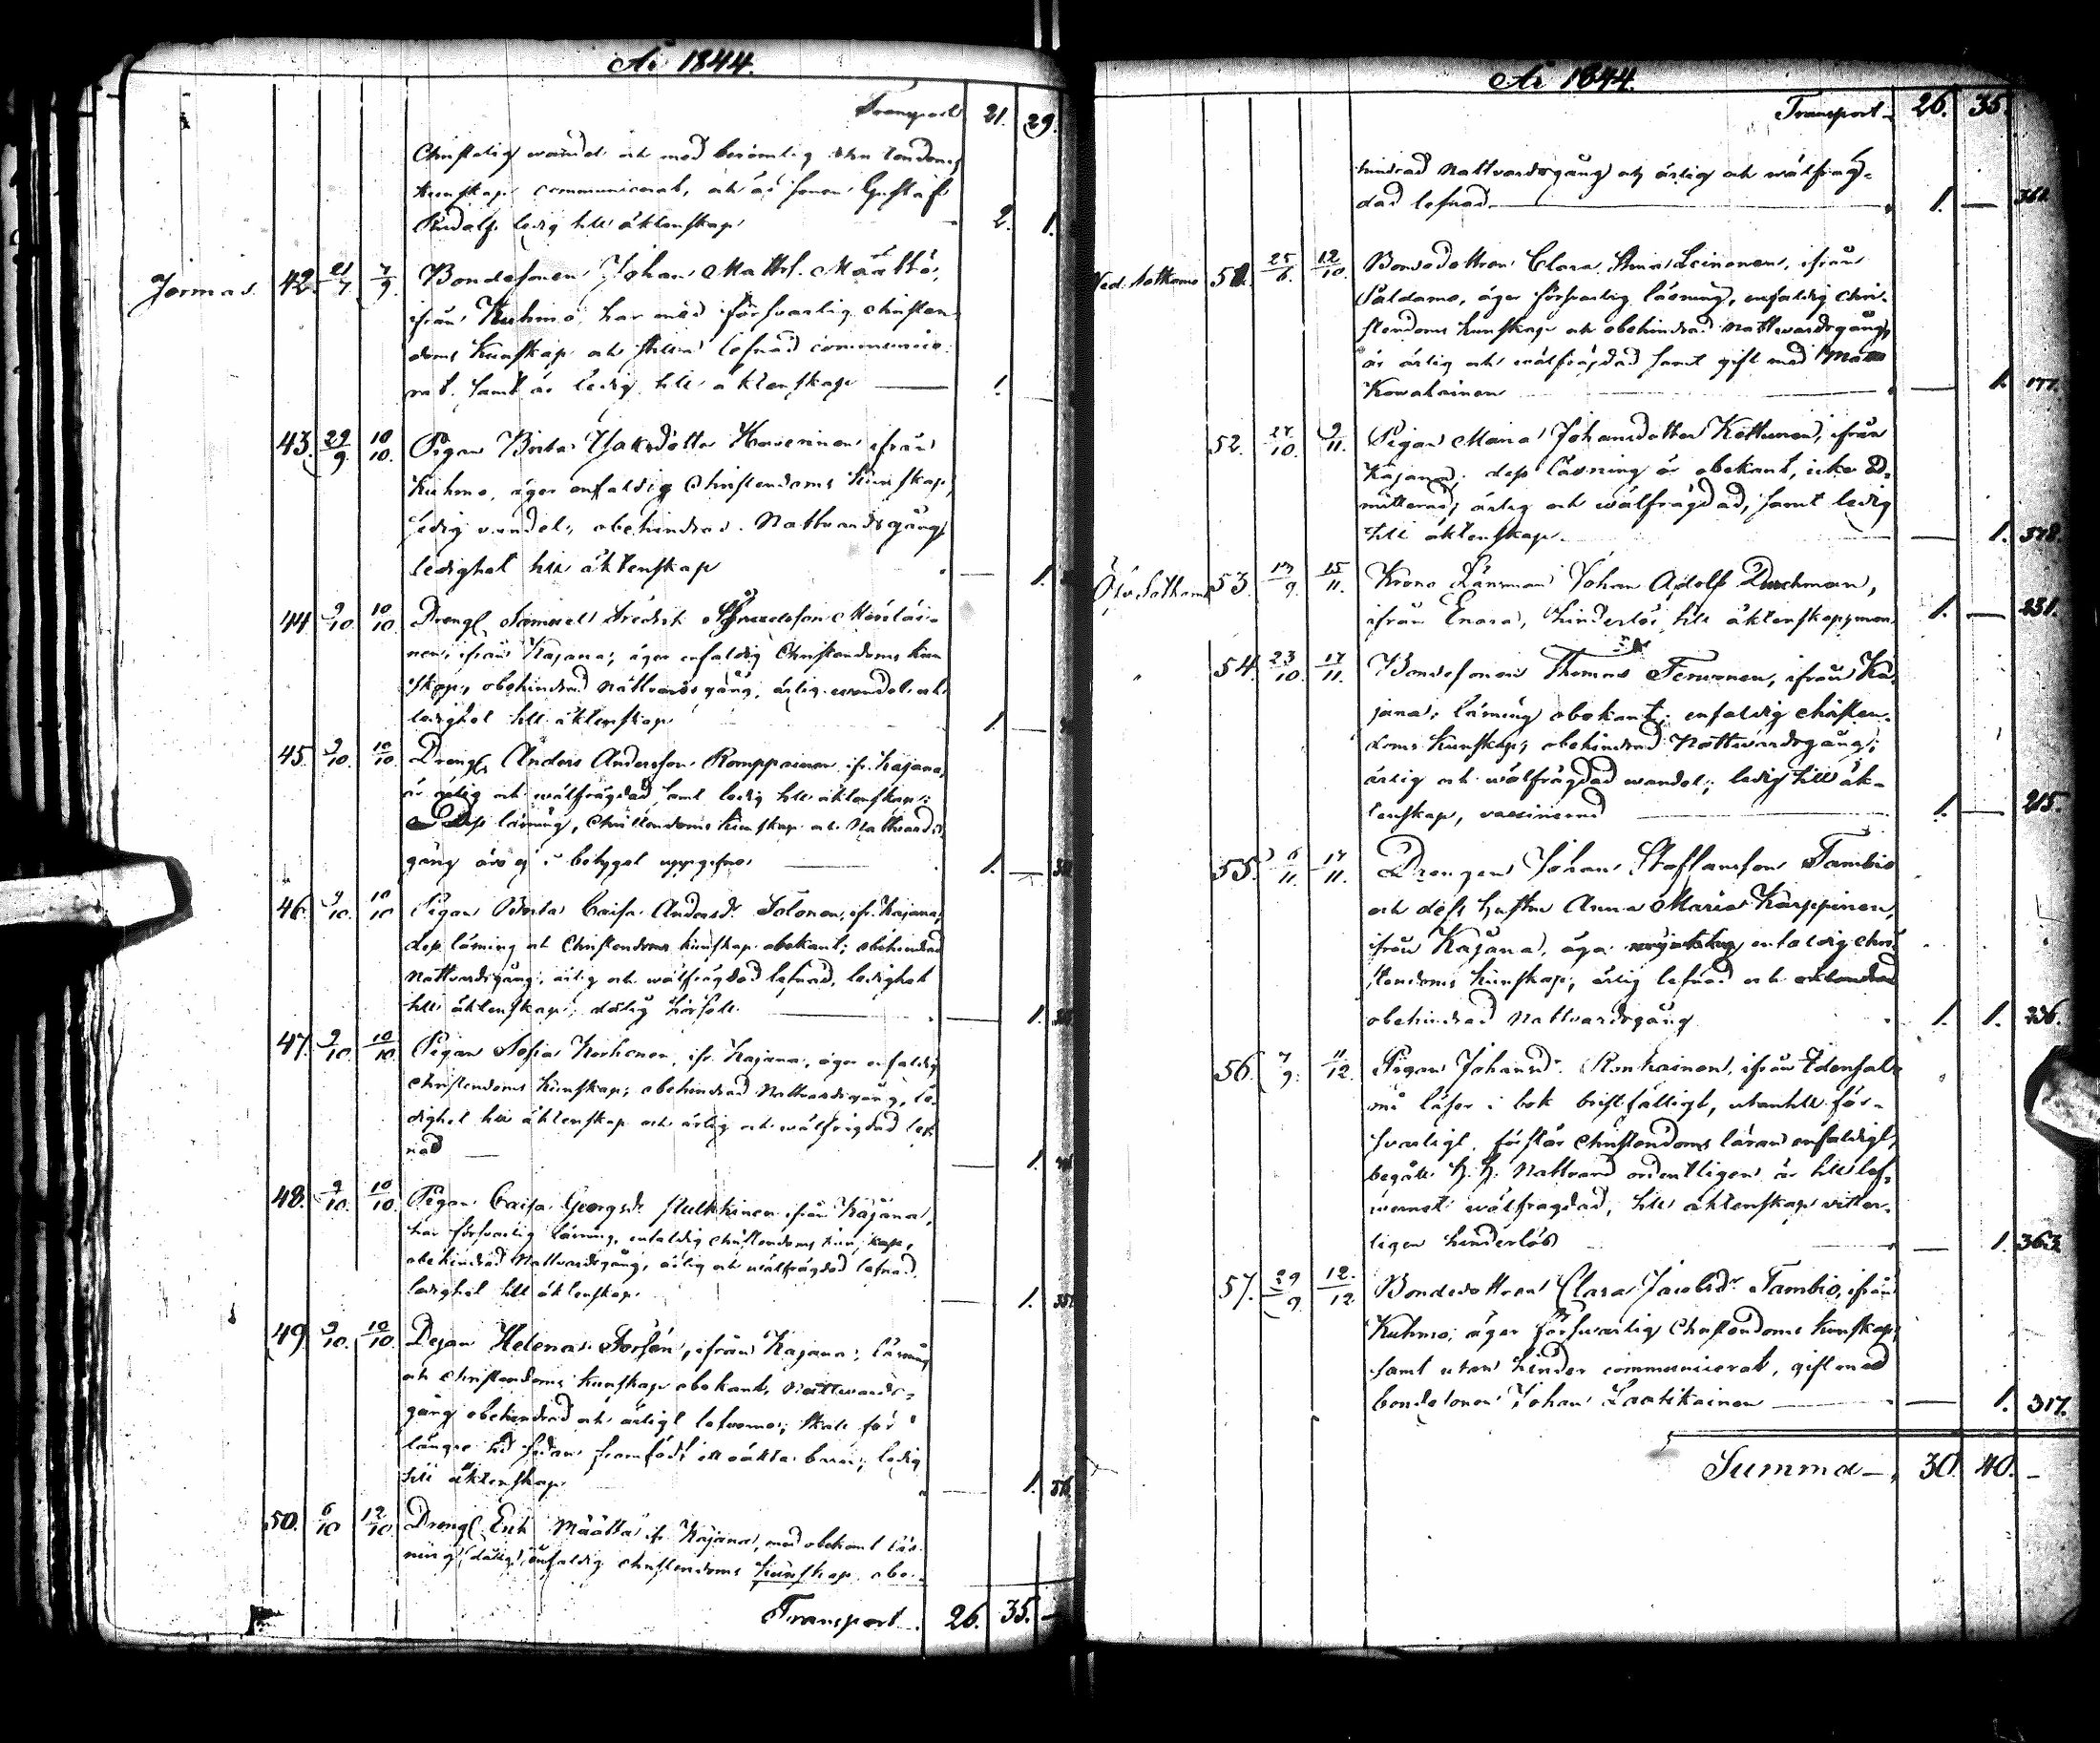 Ao 1844.
Transport 21. 29.
Christelig wandel och med berömlig
kunskap communicerat, och är sonen Gustaf
Rudolf ledig till äktenskap 2. 1.
Jormas 42. 21/7 7/9. Bondesonen Johan Mattss. Määttä,
ifrån Kuhmo, har med försvarlig christen-
doms kunskap och stilla lefnad communice-
rat, samt är ledig till äktenskap — 1.
43. 29/9 10/10. Pigan Brita Jakosdotter Heverinen ifrån
Kuhmo, äger enfaldig Christendoms kunskap,
sedig wandel, obehindrad Nattvardsgång,
ledighet till äktenskap — 1.
44. 9/10. 10/10. Dreng. Samuel Fredrik
nen, ifrån Kajana, äger enfaldig Christendoms kun
skap, obehindrad Nattvardsgång, ärlig wandel och
ledighet till äktenskap 1. —
45. 9/10. 10/10. Dreng. Anders Andersson Romppainen ifr. Kajana,
är ärlig och wälfrägdad, samt ledig till äktenskap;
dess läsning, Christendoms kunskap och Nattvards
gång äro ej i betyget uppgifne — 1. —
46. 9/10. 10/10 Pigan Brita Caisa Andersd. Tolonen, ifr. Kajana,
dess läsning och Christendoms kunskap obekant; obehindrad
Nattvardsgång, ärlig och wälfrägdad lefnad, ledighet
till äktenskap; — 1.
47. 9/10. 10/10. Pigan Sofia Korhonen, ifr. Kajana, äger enfaldig
Christendoms kunskap; obehindrad Nattvardsgång, le-
dighet till äktenskap och ärlig och wälfrägdad lef
nad — 1.
48. 9/10. 10/10 Pigan Caisa Georgsd. Mulkkinen ifrån Kajana,
har försvarlig läsning, enfaldig christendoms kunskap,
obehindrad Nattvardsgång, ärlig och wälfrägdad lefnad,
ledighet till äktenskap. — 1.
49 9/10. 10/10. Dejan Helena Forsén, ifrån Kajana; läsning
och christendoms kunskap obekant, Nattvards-
gång obehindrad och ärligt lefverne; skall för
längre tid sedan framfödt ett oäkta barn; ledig
till äktenskap. — 1.
50. 6/10 12/10 Dreng. Erik Määttä if. Kajana, med obekant läs-
ning, enfaldig christendoms kunskap, obe-
Transport 26. 35. —
Ao 1844.
Transport 26. 35.
hindrad Nattvardsgång och ärlig och wälfräg-
dad lefnad — 1. —
Ned. Sotkamo 51. 25/6. 12/10. Bondedottren Clara Stina Leinonen, ifrån
Paldamo, äger försvarlig läsning, enfaldig chri-
stendoms kunskap och obehindrad Nattwardsgång,
är ärlig och wälfrägdad samt gift med
Kowalainen — 1. 177.
52. 27/10. 9/11. Pigan Maria Johansdotter Kettunen, ifrån
Kajana; dess läsning är obekant, icke ad-
mitterad, ärlig och wälfrägdad, samt ledig
till äktenskap. — 1. 378.
Öfv. Sotkamo 53. 9. 15/11. Krono Länsman Johan Adolf
ifrån Enara, hinderlös till äktenskap, 1. — 231.
54. 23/10. 17/11. Bondesonen Thomas Tervonen, ifrån Ka-
jana; läsning obekant; enfaldig christen-
doms kunskap; obehindrad Nattwardsgång;
ärlig och wälfrägdad wandel; ledig till äk-
tenskap, vaccinerad — 1. — 215.
55. 6/11. 17/11. Drengen Johan Staffansson Tambio
och dess hustru Anna Maria Karppinen,
ifrån Kajana, äga enfaldig chri-
stendoms kunskap, ärlig lefnad och
obehindrad Nattvardsgång 1. 1. 236.
56. 7/9. 11/12. Pigan Johansd. Ronkainen, ifrån Idensal-
mi läser i bok bristfälligt, utantill för-
svarligt, förstår Christendoms läran enfaldigt,
begått H. H. Nattvard ordentligen är till lef-
wernet wälfrägdad, till äktenskap vitter-
ligen hinderlös — 1. 363.
57. 29/9. 12./12. Bondedottren Clara Jacobsdr. Tambio, ifrån
Kuhmo; äger försvarlig Christendoms kunskap,
samt utan hinder communicerat, gift med
bondesonen Johan Laatikainen — 1. 317.
Summa — 30. 40. —